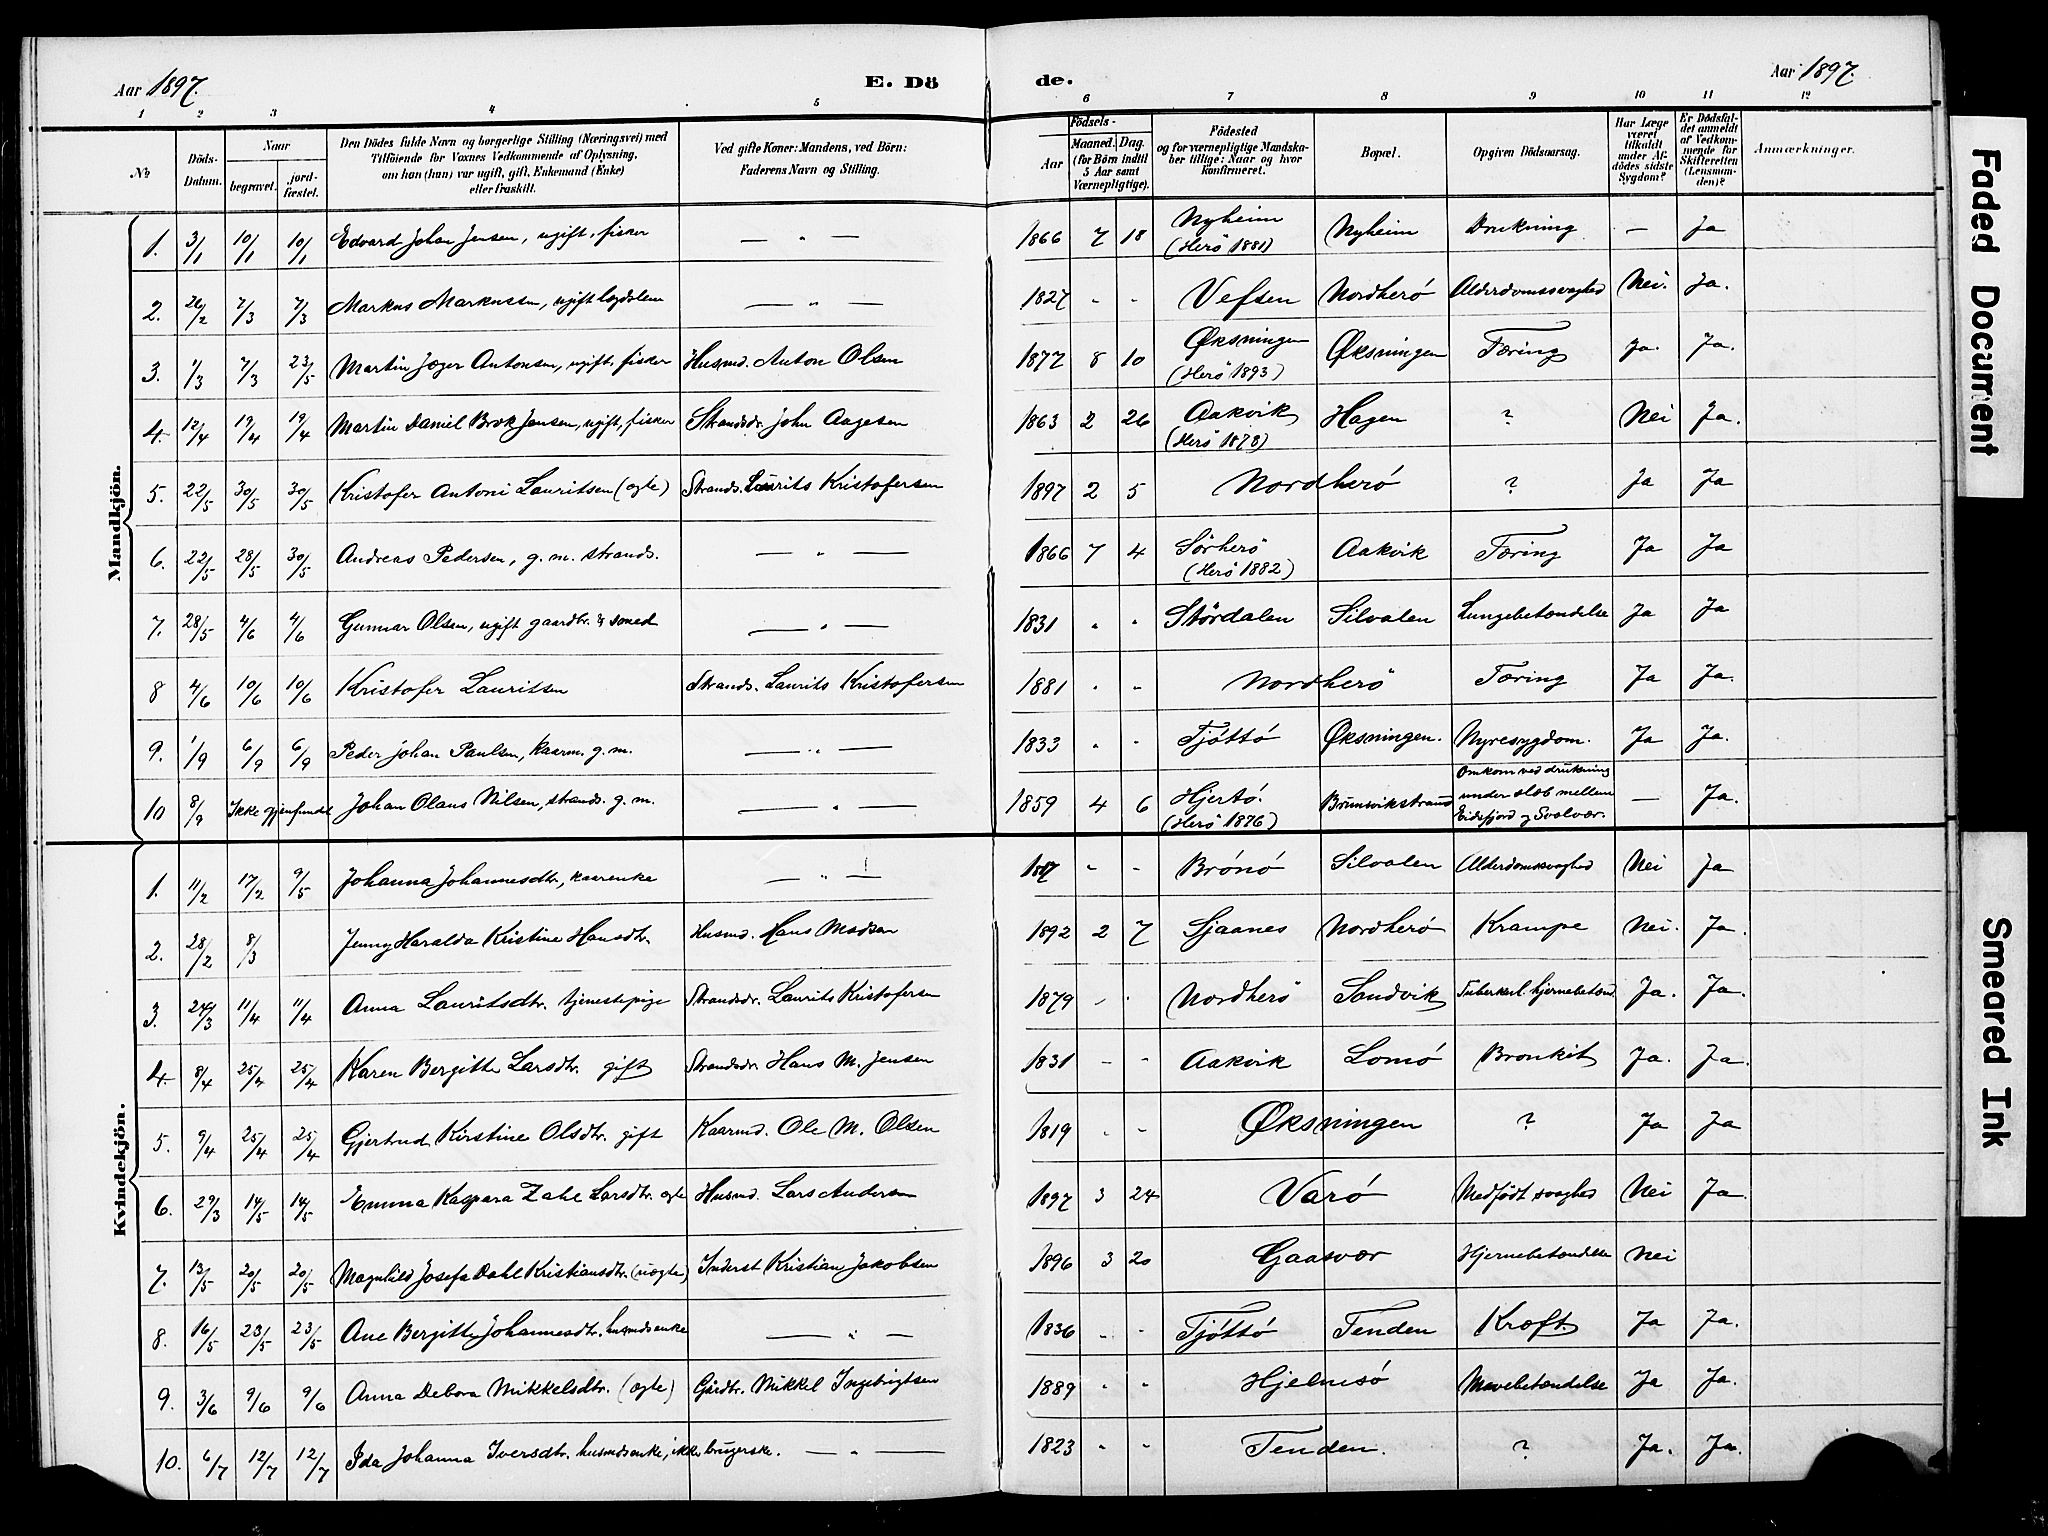 Aar 1897.
E. Dö
de.
Aar 1897.
1 2 3 4 5 6 7 8 9 10 11 12
No
Döds-Datum.
Naar
begravet.
jord-fæstet.
Den Dödes fulde Navn og borgerlige Stilling (Næringsvei) med
Tilföiende for Voxnes Vedkommende af Oplysning,
om han (hun) var ugift, gift, Enkemand (Enke)
eller fraskilt.
Ved gifte Koner: Mandens, ved Börn:
Faderens Navn og Stilling.
Födsels-
Aar
Maaned. Dag.
(for Börn indtil
5 Aar samt
Værnepligtige).
Födested
og for værnepligtige Mandska-
ber tillige: Naar og hvor
konfirmeret.
Bopæl.
Opgiven Dödsaarsag.
Har Læge
været
tilkaldt
under Af-
dödes sidste
Sygdom?
Er Dödsfal-
det anmeldt
af Vedkom-
mende for
Skifteretten
(Lensman-
den)?
Anmærkninger.
Mandkjön.
1. 3/1 10/1 10/1 Edvard Johan Jensen, ugift, fisker — " — 1866 7 18 Nyheim (Herö 1881) Nyheim Drukning — Ja
2. 26/2 7/3 7/3 Markus Markussen, ugift lægdslem — " — 1827 - - Vefsen Nordherö Alderdomssvaghed Nei. Ja.
3. 1/3 7/3 23/5 Martin Jæger Antonsen, ugift, fisker Husmd. Anton Olsen 1877 8 10 Øksningen (Herö 1893) Øksningen Tæring Ja. Ja.
4. 12/4 19/4 19/4 Martin Daniel Brok Jensen, ugift, fisker Strandsdr. John Aagesen 1863 2 26 Aakvik (Herö 1878) Hagen ? Nei Ja.
5. 22/5 30/5 30/5 Kristofer Antoni Lauritsen (ægte) Strands. Laurits Kristofersen 1897 2 5 Nordherö ? Ja Ja
6. 22/5 28/5 30/5 Andreas Pedersen, g. m. strands. — " — 1866 7 4 Sörherö (Herö 1882) Aakvik Tæring Ja Ja
7. 28/5 4/6 4/6 Gunnar Olsen, ugift gaardbr. & smed — " — 1831 " " Stördalen Silvalen Lungebetændelse Ja Ja
8 4/6 10/6 10/6 Kristofer Lauritsen Strands. Laurits Kristofersen 1881 " " Nordherö Tæring Ja Ja.
9. 1/9 6/9 6/9 Peder Johan Paulsen, kaarm. g. m. — " — 1833 " " Tjöttö Øksningen. Nyresygdom. Ja Ja.
10 8/9 Ikke gjenfundet Johan Olaus Nilsen, strands. g. m. — " — 1859 4 6 Hjertö. (Herö 1876) Brunsvikstrand Omkom ved drukning under slæb mellem Eidsfjord og Svolvær. — Ja.
Kvindekjön.
1. 11/2 17/2 9/5 Johanna Johannesdtr, kaarenke — " — - - Brönö Silvalen Alderdomssvaghed Nei Ja
2. 28/2 8/3 Jenny Haralda Kristine Hansdtr. Husmd. Hans Madsen 1892 2 7 Sjaanes Nordherö Krampe Nei. Ja.
3. 11/4 11/4 Anna Lauritsdtr. tjenestepige Strandsdr. Laurits Kristofersen 1879 - " Nordherö Sandvik Tuberkul. hjernebetænd. Ja. Ja.
4. 8/4 25/4 25/4 Karen Bergitte Larsdtr. gift Strandsdr. Hans M. Jensen 1831 - - Aakvik Lomö Bronkit Ja. Ja.
5. 9/4 25/4 25/4 Gjertrud Kirstine Olsdtr. gift Kaarmd. Ole M. Olsen 1819 - - Øksningen ? Ja Ja
6. 29/3 14/5 14/5 Emma Kaspara Zahl Larsdtr. ægte Husmd. Lars Andersen 1897 3 24 Varö Medfödt svaghed Nei Ja
7. 13/5 20/5 20/5 Magnhild Josefa Dahl Kristiansdtr. (uægte) Inderst Kristian Jakobsen 1896 3 20 Gaasvær Hjernebetændelse Nei
8. 16/5 23/5 23/5 Ane Bergitte Johannesdtr. husmdsenke — " — 1836 - - Tjöttö Tenden Kræft. Ja Ja.
9. 3/6 9/6 9/6 Anna Debora Mikkelsdtr. (ægte) Gårdbr. Mikkel Ingebrigtsen 1889 " " Hjelmsö Mavebetændelse Ja Ja.
10. 6/7 12/7 12/7 Ida Johanna Iversdtr. husmdsenke, ikke brugerske. — " — 1823 " " Tenden. ? Ja. Ja.
Faded Document
Smeared Ink